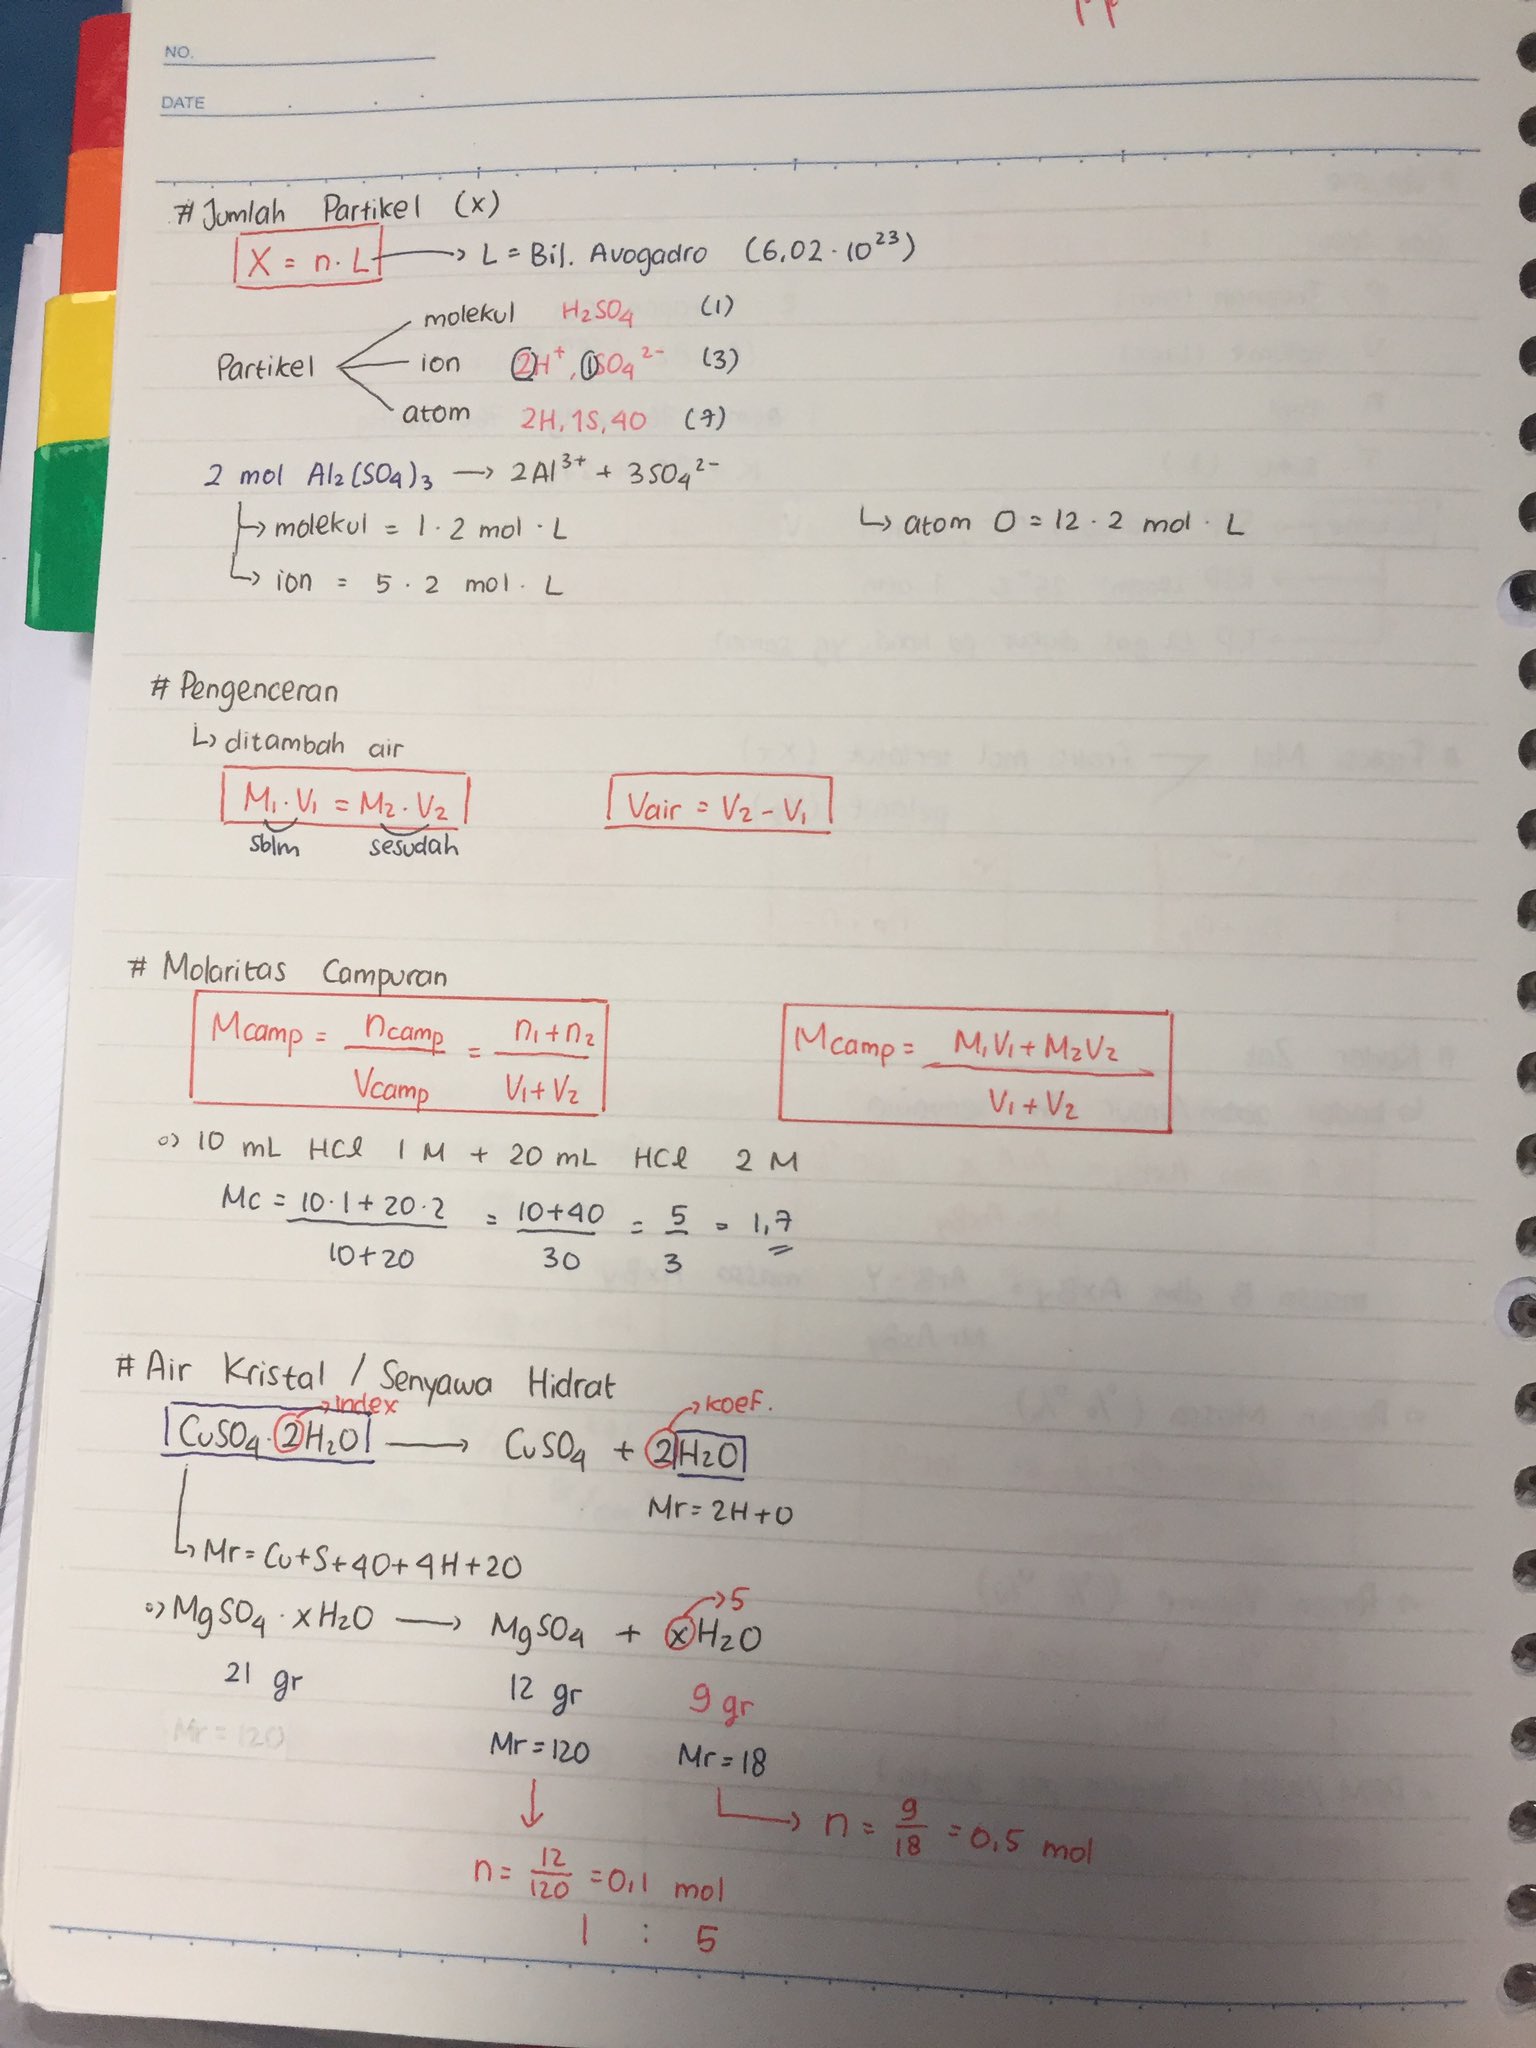 NO.
DATE
# Jumlah Partikel (x)
X = n. L → L = Bil. Avogadro (6,02 · 10²³)
molekul H₂SO₄ (1)
Partikel ion 2H⁺, 1SO₄²⁻ (3)
atom 2H, 1S, 4O (7)
2 mol Al₂(SO₄)₃ → 2Al³⁺ + 3SO₄²⁻
↳ molekul = 1 · 2 mol · L ↳ atom O = 12 · 2 mol · L
↳ ion = 5 · 2 mol · L
# Pengenceran
↳ ditambah air
M₁. V₁ = M₂. V₂ Vair = V₂ - V₁
sblm sesudah
# Molaritas Campuran
Mcamp = ncamp/Vcamp = n₁ + n₂/V₁ + V₂ Mcamp = M₁V₁ + M₂V₂/V₁ + V₂
10 mL HCl 1 M + 20 mL HCl 2 M
Mc = 10·1 + 20·2/10+20 = 10+40/30 = 5/3 = 1,7
# Air Kristal / Senyawa Hidrat
→ index → koef.
CuSO₄ . 2H₂O → CuSO₄ + 2H₂O
Mr = 2H+O
↳ Mr = Cu+S+4O+4H+2O
→ 5
MgSO₄ . xH₂O → MgSO₄ + xH₂O
21 gr 12 gr 9 gr
Mr = 120 Mr = 18
n = 9/18 = 0,5 mol
n = 12/120 = 0,1 mol
1 : 5